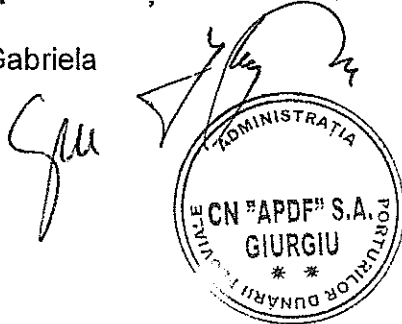 Gabriela
ADMINISTRAŢIA PORTURILOR DUNĂRII FLUVIALE
CN "APDF" S.A.
GIURGIU
* *